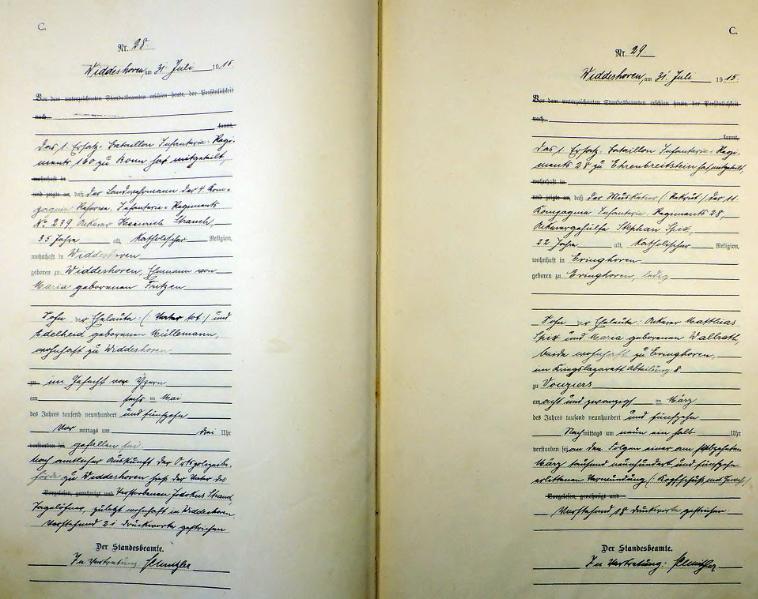 C.
Nr. 28.
Widdeshoven, am 31. Juli 1915.
Vor dem unterzeichneten Standesbeamten erschien heute, der Persönlichkeit
nach
kannt,
Das 1. Ersatz-Bataillon Infanterie-Regi-
ments 160 zu Bonn hat mitgeteilt,
wohnhaft in
und zeigte an, daß der Landwehrmann der 4. Kom-
pagnie Reserve Infanterie-Regiments
No 239 Ackerer Heinrich
35 Jahre alt, katholischer Religion,
wohnhaft in Widdeshoven
geboren zu Widdeshoven, Ehemann von
Maria geborenen Fritzen
Sohn der Eheleute (Vater tot) und
Adelheid geborenen Müllemann,
wohnhaft zu Widdeshoven
zu im Gefecht von Ypern
am sechs ten Mai
des Jahres tausend neunhundert und fünfzehn
Vor mittags um drei Uhr
verstorben sei gefallen sei
Nach amtlicher Auskunft der Ortspolizeibe-
hörde zu Widdeshoven hieß der Vater des
Vorgelesen, genehmigt und Verstorbenen Jakobus
Tagelöhner, zuletzt wohnhaft in Widdeshoven
Vorstehend 21 Druckworte gestrichen
Der Standesbeamte.
In Vertretung:
C.
Nr. 29
Widdeshoven, am 31. Juli 1915.
Vor dem unterzeichneten Standesbeamten erschien heute, der Persönlichkeit
nach
kannt,
Das 1. Ersatz-Bataillon Infanterie-Regi-
ments 28 zu Ehrenbreitstein hat mitgeteilt,
wohnhaft in
und zeigte an, daß der Musketier (Rekrut) der 11.
Kompagnie Infanterie Regiments 28,
Ackerergehülfe Stephan Spix,
22 Jahre alt, katholischer Religion,
wohnhaft in Evinghoven
geboren zu Evinghoven, ledig
Sohn der Eheleute: Ackerer Matthias
Spix und Maria geborenen Wallrath,
beide wohnhaft zu Evinghoven,
im Kriegslazarett Abteilung 8
zu Vouziers
am acht und zwanzig ten März
des Jahres tausend neunhundert und fünfzehn
Nach mittags um neun ein halb Uhr
verstorben sei an den Folgen einer am siebzehnten
März tausend neunhundert und fünfzehn
erlittenen Verwundung (Kopfschuß
Vorgelesen, genehmigt und
Vorstehend 18 Druckworte gestrichen
Der Standesbeamte.
In Vertretung: